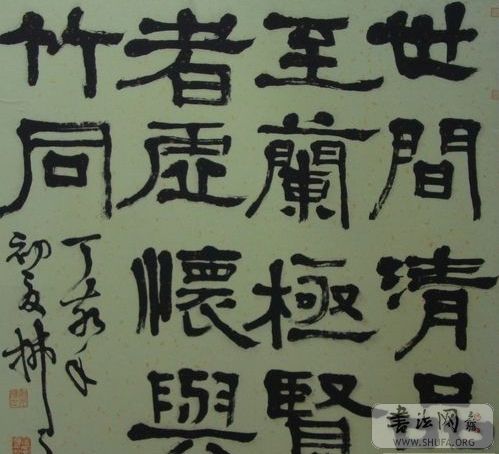 世間清品
至蘭極賢
者虛懷與
竹同
丁亥年
初夏
书法网
WWW.SHUFA.ORG